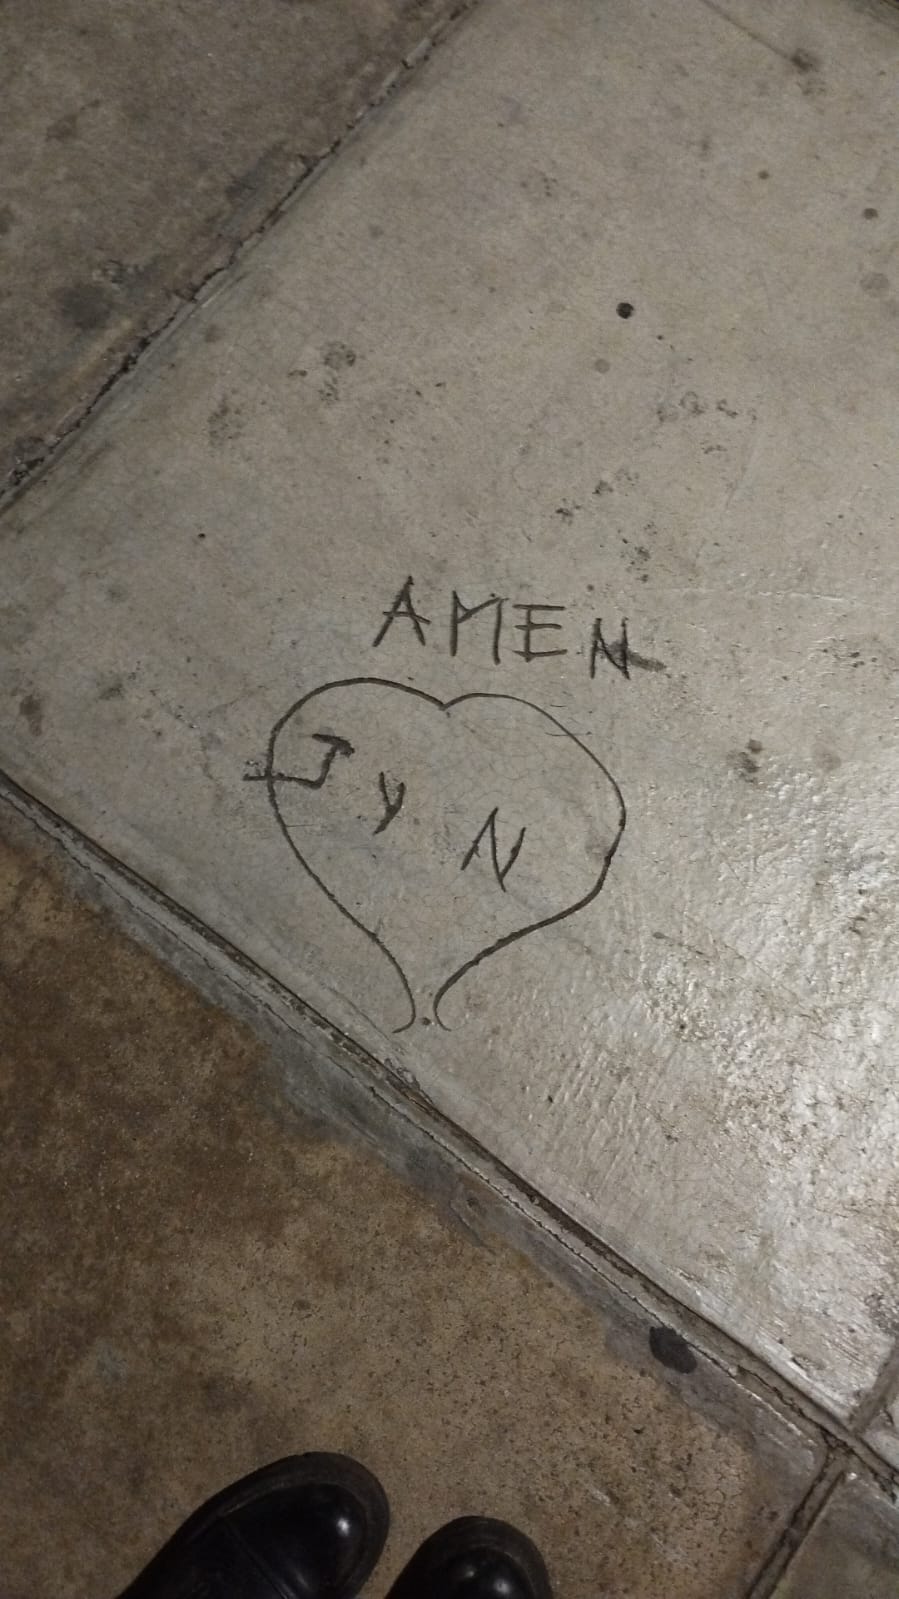 AMEN
J y N